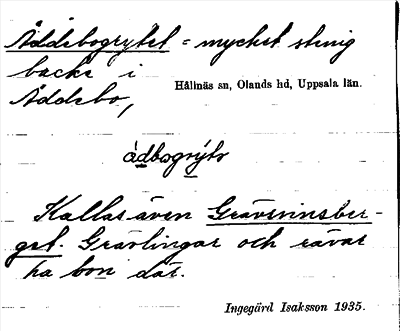 Åddebogrytet = mycket stenig
backe i
Åddebo,
Hållnäs sn, Olands hd, Uppsala län.
ådbogrýtə
Kallas även Grävsvinsber-
get. Grävlingar och rävar
ha bon där.
Ingegärd Isaksson 1935.